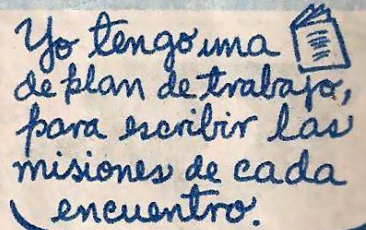 Yo tengo una
de plan de trabajo,
para escribir las
misiones de cada
encuentro.